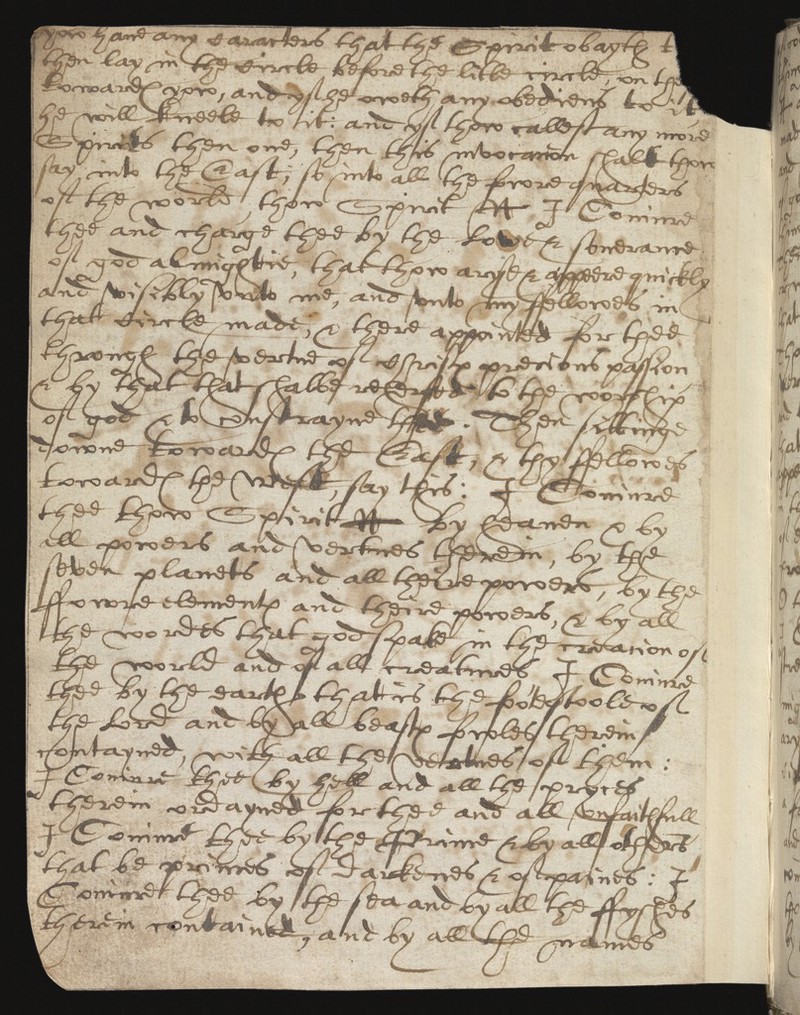 yow have any caracters that the Spirit obayth t
then lay in the circle before the litle circle, on the
toward yow, and yf he oweth any obediens to it
he will kneele to it: and yf thow callest any more
Spirits then one, then this invocation shalt thow
say, into the East; so into all the fowre quarters
of the world, thow Spirit N I Coniure
thee and charge thee by the Love & soverance
of god almightie, that thow aryse & appeere quickly
and visibly vnto me, and vnto my ffellowes in
that circle made, & there appointed for thee
through the vertue of christs precious passion
& by that that shalbe rehersed to the worship
of god & to constrayne thee. Then sittinge
downe towards the East, & thy ffellowes
towards the West, say this: I Coniure
thee thow Spirit N by heaven & by
all powers and vertues therein, by the
seven planets and all theire powers, by the
ffowre elements and theire powers, & by all
the wordes that god spake in the creacion of
the world and of all creatures I Coniure
thee by the earth thatis the footestoole of
the Lord and by all beasts fowles therein
contayned, with all the vertues of them:
I Coniure thee by hell and all the
therein ordayned for thee and all vnfaithfull
I Coniure thee by the Prince & by all others
that be princes of Darkenes & of paines: I
Coniure thee by the sea and by all the ffyshes
therein contained, and by all the names